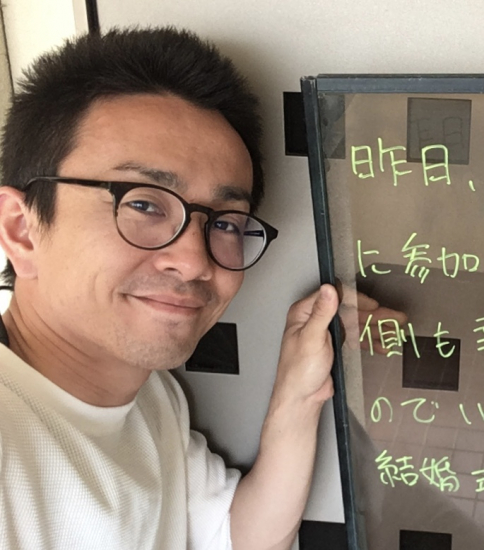 昨日、
に参加
側も
のでい
結婚式